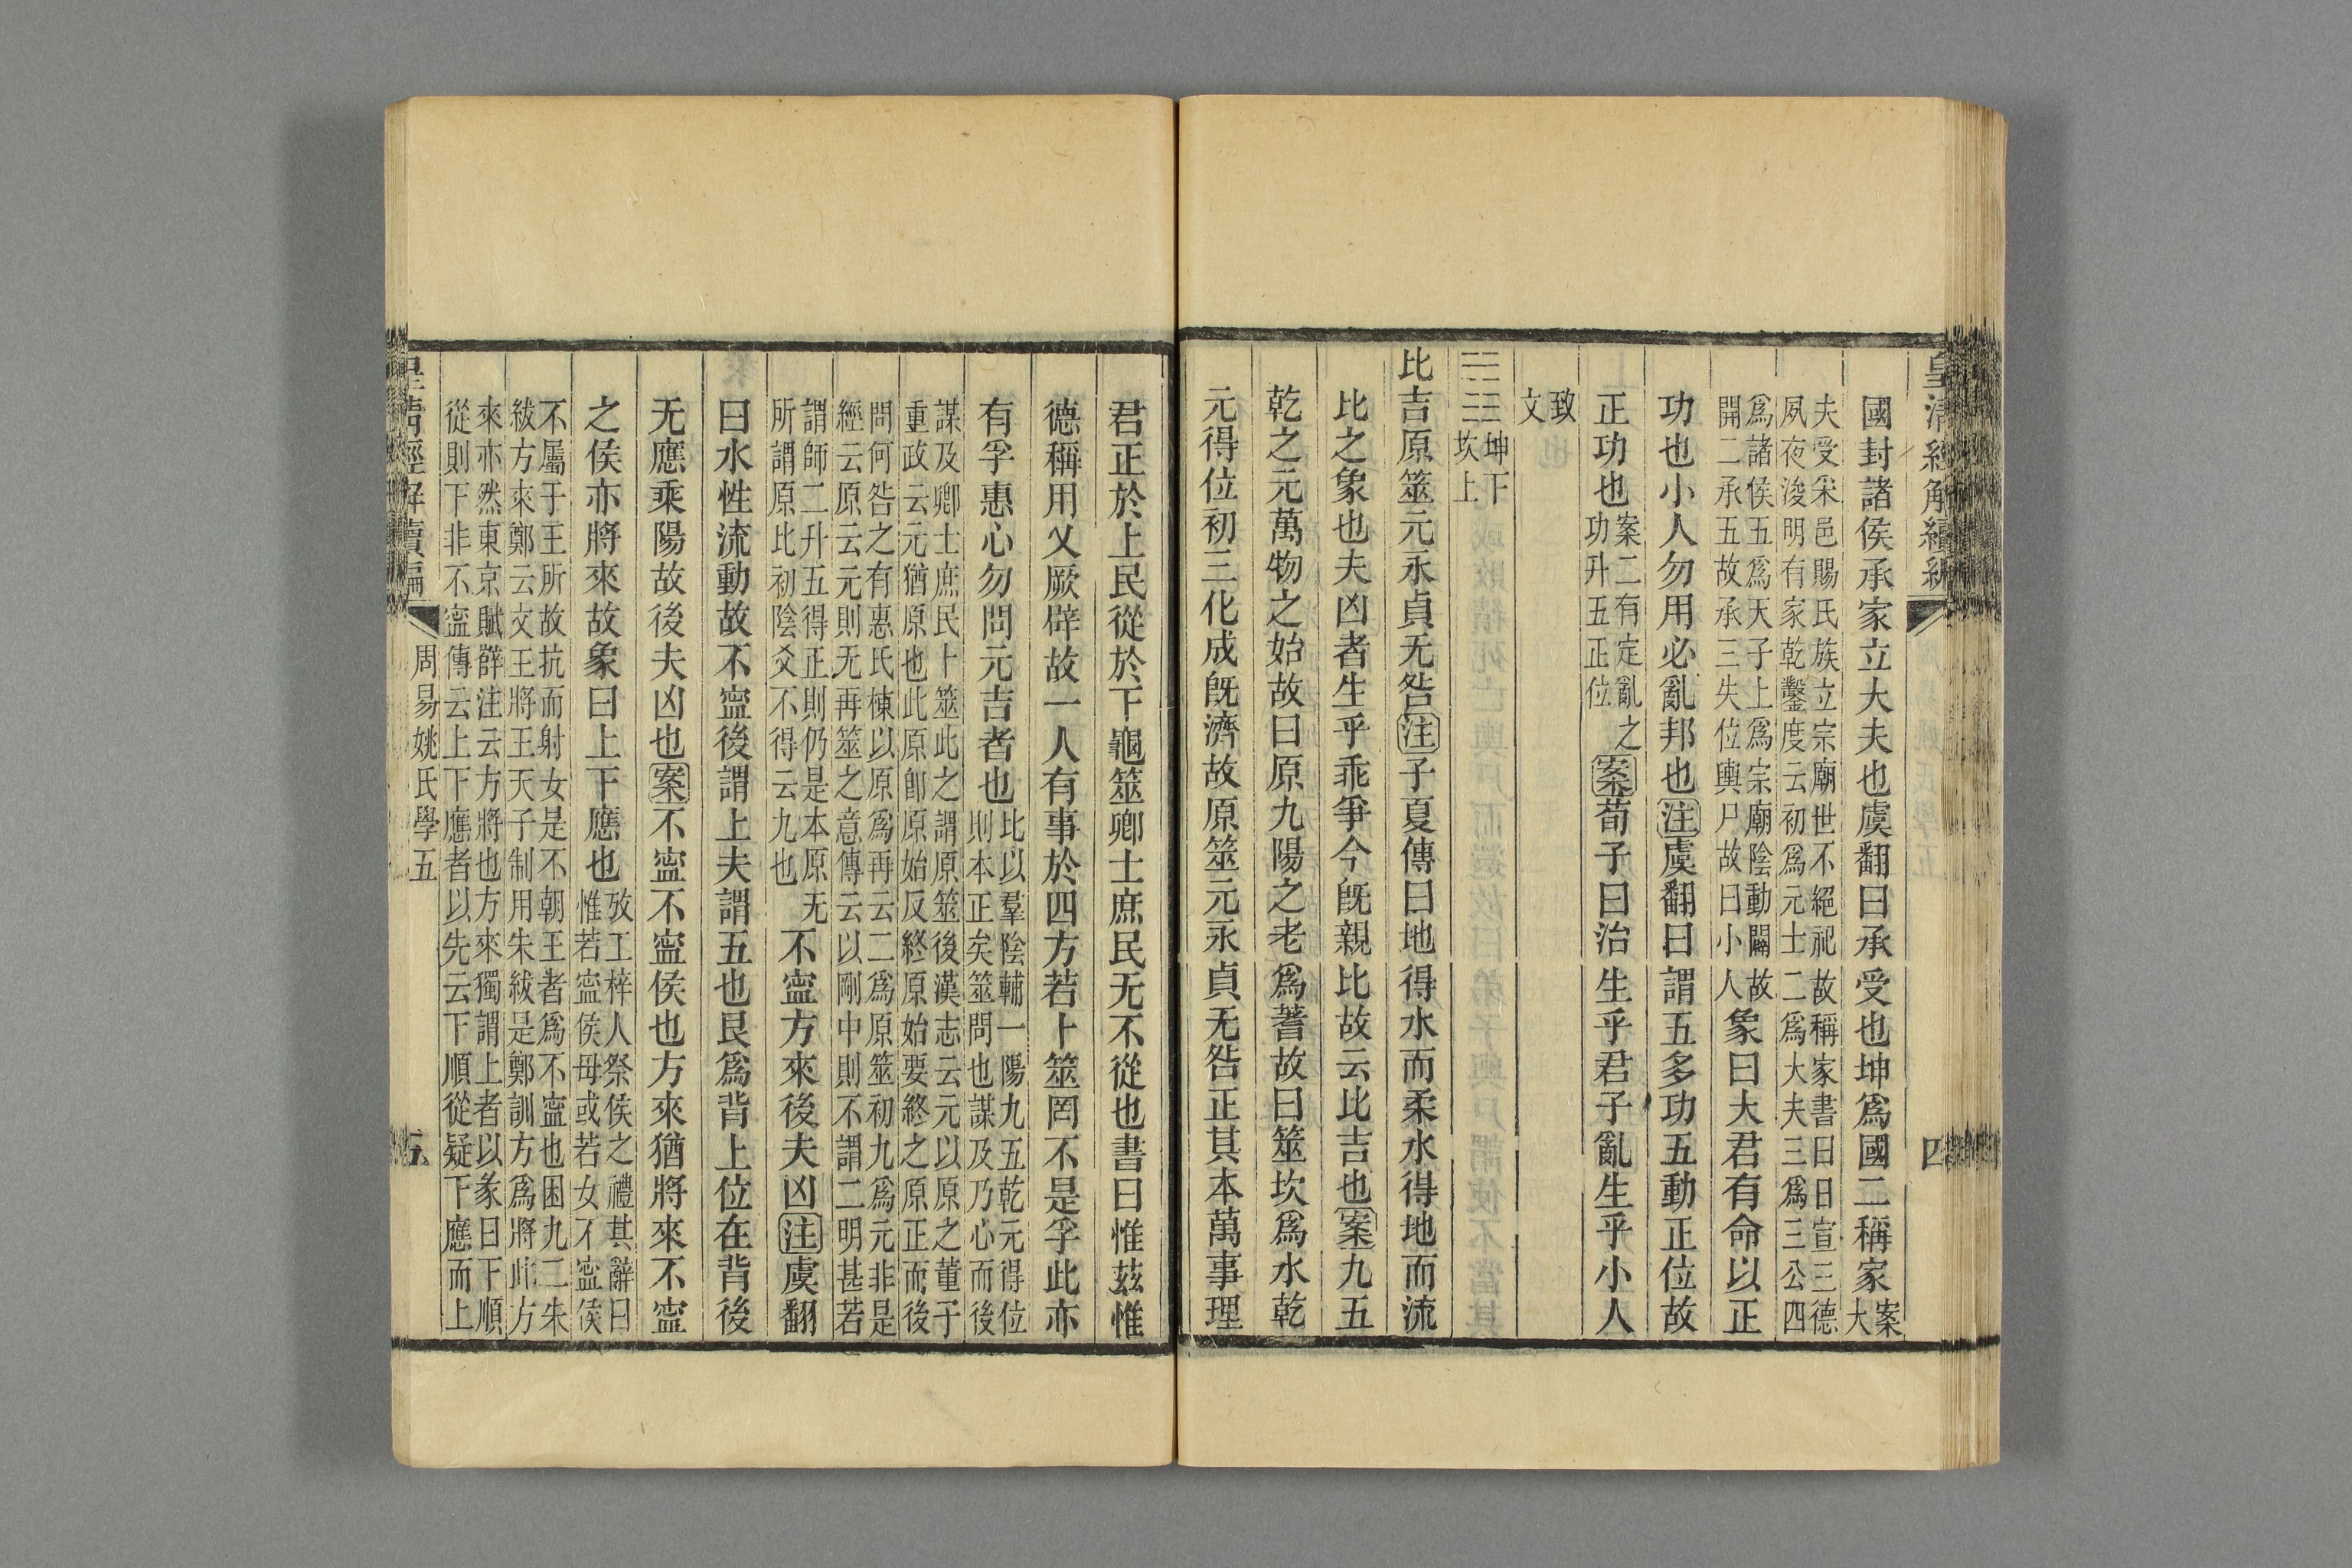 皇清經解續編
四
國封諸侯承家立大夫也虞翻曰承受也坤爲國二稱家案大
夫受采邑賜氏族立宗廟世不絕祀故稱家書曰日宣三德
夙夜浚明有家乾鑿度云初爲元士二爲大夫三爲三公四
爲諸侯五爲天子上爲宗廟陰動闢故
開二承五故承三失位輿尸故曰小人
象曰大君有命以正
功也小人勿用必亂邦也注虞翻曰謂五多功五動正位故
正功也案二有定亂之功升五正位案荀子曰治生乎君子亂生乎小人
致文
坤下坎上
比吉原筮元永貞无咎注子夏傳曰地得水而柔水得地而流
比之象也夫凶者生乎乖爭今旣親比故云比吉也案九五
乾之元萬物之始故曰原九陽之老爲蓍故曰筮坎爲水乾
元得位初三化成旣濟故原筮元永貞无咎正其本萬事理
君正於上民從於下龜筮卿士庶民无不從也書曰惟茲惟
德稱用乂厥辟故一人有事於四方若卜筮罔不是孚此亦
有孚惠心勿問元吉者也比以羣陰輔一陽九五乾元得位則本正矣筮問也謀及乃心而後
謀及卿士庶民卜筮此之謂原筮後漢志云元以原之董子
重政云元猶原也此原卽原始反終原始要終之原正而後
問何咎之有惠氏棟以原爲再云二爲原筮初九爲元非是
經云原云元則无再筮之意傳云以剛中則不謂二明甚若
謂師二升五得正則仍是本原无
所謂原比初陰爻不得云九也
不寍方來後夫凶注虞翻
曰水性流動故不寍後謂上夫謂五也艮爲背上位在背後
无應乘陽故後夫凶也案不寍不寍侯也方來猶將來不寍
之侯亦將來故象曰上下應也攷工梓人祭侯之禮其辭曰惟若寍侯毋或若女不寍侯
不屬于王所故抗而射女是不朝王者爲不寍也困九二朱
紱方來鄭云文王將王天子制用朱紱是鄭訓方爲將此方
來亦然東京賦薛注云方將也方來獨謂上者以彖曰下順
從則下非不寍傳云上下應者以先云下順從疑下應而上
皇清經解續編
周易姚氏學五
五